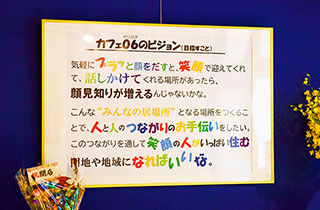 カフェ06のビジョン(目指すこと)
気軽にフラッと顔をだすと、笑顔で迎えてくれ
て、話しかけてくれる場所があったら、
顔見知りが増えるんじゃないかな。
こんな“みんなの居場所”となる場所をつくるこ
とで、人と人のつながりのお手伝いをしたい。
このつながりを通して笑顔の人がいっぱい住む
団地や地域になればいいな。